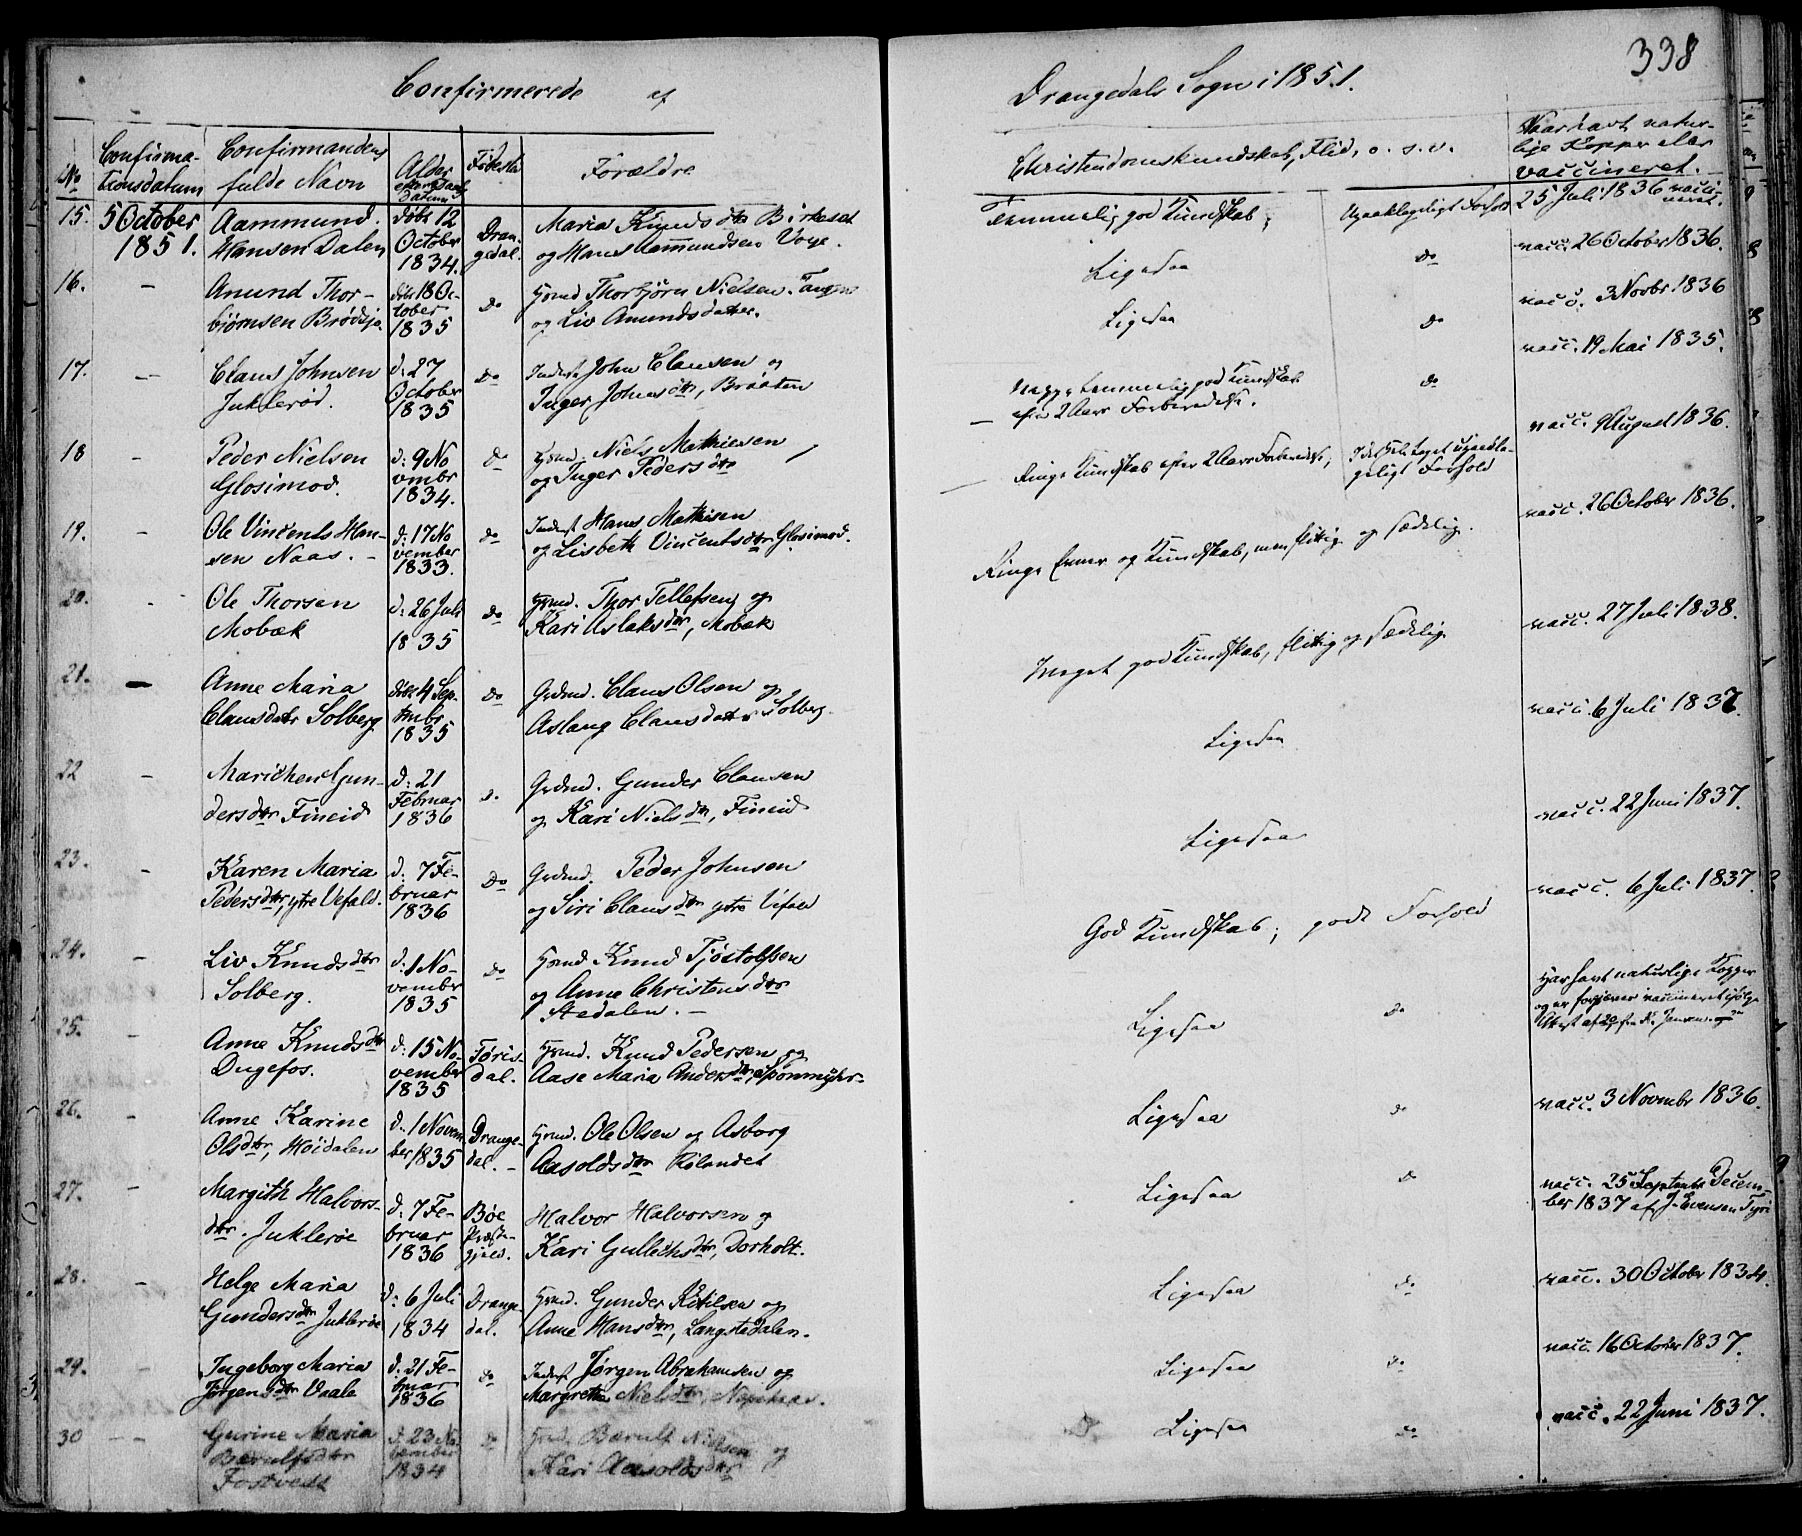 338
Confirmerede af
Drangedals Sogn i 1851.
No
Confirma-
tionsdatum
Confirmandens
fulde Navn
Alder
Datum
Fødested
Forældre
Christendomskundskab, Flid, o. s. v.
Naar havt natur-
lige Kopper eller
vaccineret.
15. 5 October
1851.
Aammund
Hansen Dalen
døbt 12
October
1834.
Dran-
gedal.
Maria Knudsdtr Birkeset
og Hans Aammundsen Voje.
Temmelig god Kundskab;
Upaaklageligt Forhold
25 Juli 1836 vacci-
neret.
16. -
Anund Thor-
bjørnsen Brødsjø
døbt 18 Oc-
tober
1835
do
Hmd Thorbjørn Nielsen Tangen
og Liv Anundsdatter.
Ligesaa
do
vacc. 26 October 1836.
17. -
Claus Johnsen
Juklerød.
d: 27
October
1835
do
Inderst John Clausen og
Inger Johnsdtr, Braaten
Ligesaa
do
vacc. 3 Novbr 1836
18 -
Peder Nielsen
Glosimod.
d: 9 No
vembr
1834.
do
Hmd. Niels Mathiesen
og Inger Pedersdtr
temmelig god Kundskab
efter 2 Aars Forberedelse.
do
vacc. 19 Mai 1835.
19. -
Ole Vincents Han-
sen Naas. -
d: 17 No
vember
1833.
do
Inderst Hans Mathisen
og Lisbeth Vincentsdtr Glosimod.
Ringe Kundskab efter 2 Aars Forberedelse;
I det Hele taget upaakla-
geligt Forhold
vacc. 9 August 1836.
20. -
Ole Thorsen
Mobæk
d: 26 Juli
1835
do
Hmd. Thor Tellefsen og
Kari Aslaksdtr, Mobæk
Ringe Evner og Kundskab, men flittig og sædelig.
vacc. 26 October 1836.
21. -
Anne Maria
Clausdatr Solberg
døbt 4 Sep-
tmbr
1835
do
Grdmd. Claus Olsen og
Aslaug Clausdatter Solberg.
Meget god Kundskab, flittig og sædelig
vacc. 27 Juli 1838.
22 -
Marichen Gun-
dersdtr Fineid
d: 21
Februar
1836
d.
Grdmd. Gunder Clausen
og Kari Nielsdtr, Fineid
Ligesaa
vacc. 6 Juli 1837.
23. -
Karen Maria
Pedersdtr, ytre Vefald.
d: 7 Fe-
bruar
1836
do
Grdmd. Peder Johnsen
og Siri Clausdtr ytre Vefald
Ligesaa
vacc. 22 Juni 1837.
24. -
Liv Knudsdtr
Solberg.
d: 1 No-
vember
1835
do
Hmd Knud Tjøstolfsen
og Anne Christensdtr
Stedalen. -
God Kundskab; godt Forhold
vacc. 6 Juli 1837.
25. -
Anne Knudsdtr
Dugefos.
d: 15 No
vember
1835
Tøris-
dal.
Hmd. Knud Pedersen og
Aase Maria Andersdtr, Sponmyhr-
Ligesaa
do
Har havt naturlige Kopper
og er forgjæves vaccineret ifølge
Attest af
26. -
Anne Karine
Olsdtr, Høidalen
d: 1 Novem
ber 1835
Drange-
dal. -
Hmd. Ole Olsen og Asborg
Aasoldsdtr Rølandet
Ligesaa
do
vacc. 3 Novembr 1836.
27. -
Margith Halvors-
dtr. Juklerøe
d: 7 Fe-
bruar
1836
Bøe
Præste-
gjeld.
Halvor Halvorsen og
Kari Gullechsdtr, Dorholt.
Ligesaa
do
vacc. 25 Decem-
ber 1837 af J. Evensen Tyri
28. -
Helge Maria
Gundersdtr Juklerøe
d: 6 Juli
1834
Drange-
dal.
Hmd. Gunder Kittilsen og
Anne Hansdtr, Langstedalen.
Ligesaa
do
vacc. 30 October 1834.
29. -
Ingeborg Maria
Jørgensdtr Vaale
d: 21 Fe-
bruar
1836
do
Inderst Jørgen Abrahamsen og
Margrethe Nielsdtr,
Ligesaa
do
vacc. 16 October 1837.
30 - -
Gurine Maria
Bærulfsdtr
Fostvedt
d: 23 No
vember
1834
do
Hmd. Bærulf Nielsen og
Kari Aasoldsdtr
Ligesaa
do
vacc. 22 Juni 1837.